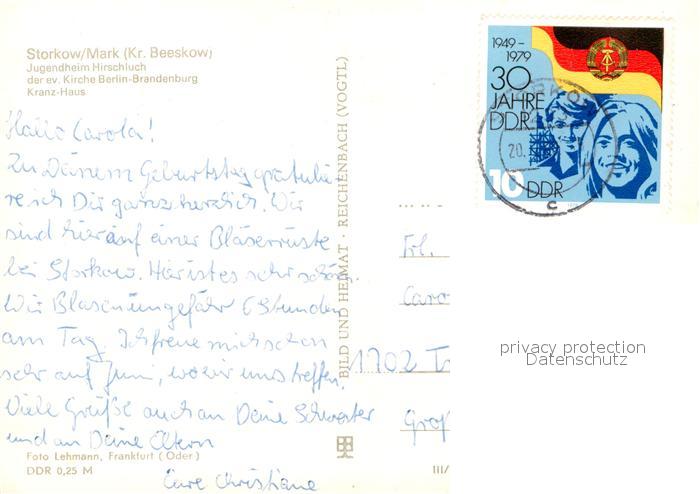 Storkow/Mark (Kr. Beeskow)
Jugendheim Hirschluch
der ev. Kirche Berlin-Brandenburg
Kranz-Haus
Hallo Carola!
Zu Deinem Geburtstag gratulie-
re ich Dir ganz herzlich. Wir
sind hier auf einer Bläserrüste
bei Storkow. Hier ist es sehr schön.
Wir Blasen ungefähr 6 Stunden
am Tag. Ich freue mich schon
sehr auf Juni, wo wir uns treffen.
Viele Grüße auch an Deine Schwester
und an Deine Eltern
Eure Christiane
Foto Lehmann, Frankfurt (Oder)
DDR 0,25 M
BILD UND HEIMAT · REICHENBACH (VOGTL)
III/
1949-
1979
30
JAHRE
DDR
10
DDR
20.
c
Frl.
Caro
1702 T
Groß
privacy protection
Datenschutz